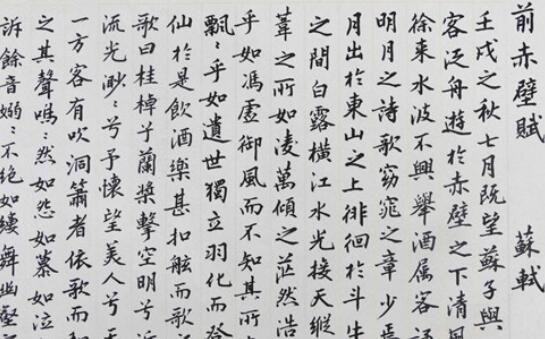 前赤壁賦 蘇軾
壬戌之秋七月既望蘇子與
客泛舟遊於赤壁之下清風
徐来水波不興舉酒属客
明月之詩歌窈窕之章少焉
月出於東山之上徘徊於斗牛
之間白露橫江水光接天縱
葦之所如凌萬傾之茫然浩
乎如馮虛御風而不知其所
飄〻乎如遺世獨立羽化而登
仙於是飲酒樂甚扣舷而歌
歌曰桂棹兮蘭槳擊空明兮
流光渺〻兮予懷望美人兮
一方客有吹洞簫者依歌而和
之其聲嗚〻然如怨如慕如泣
訴餘音嫋〻不絕如縷舞幽壑